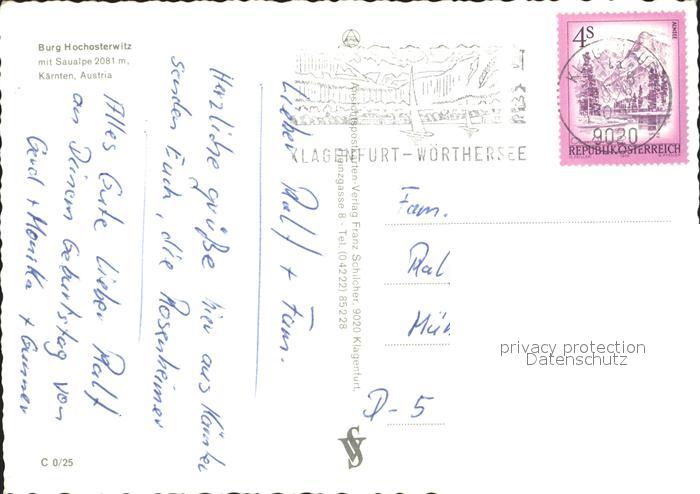 Burg Hochosterwitz
mit Saualpe 2081 m,
Kärnten, Austria
Lieber Ralf + Fam.
Herzliche Grüße hier aus Kärnten
senden Euch, die Rosenheimer
Alles Gute lieber Ralf
an Deinem Geburtstag von
Gerd + Monika +
C 0/25
Ansichtspostkarten-Verlag Franz Schilcher, 9020 Klagenfurt,
gasse 8 - Tel. (04222) 85228
KLAGENFURT-WÖRTHERSEE
4S
ALMSEE
9020
REPUBLIK ÖSTERREICH
Fam.
Ral
Mün
D-5
privacy protection
Datenschutz